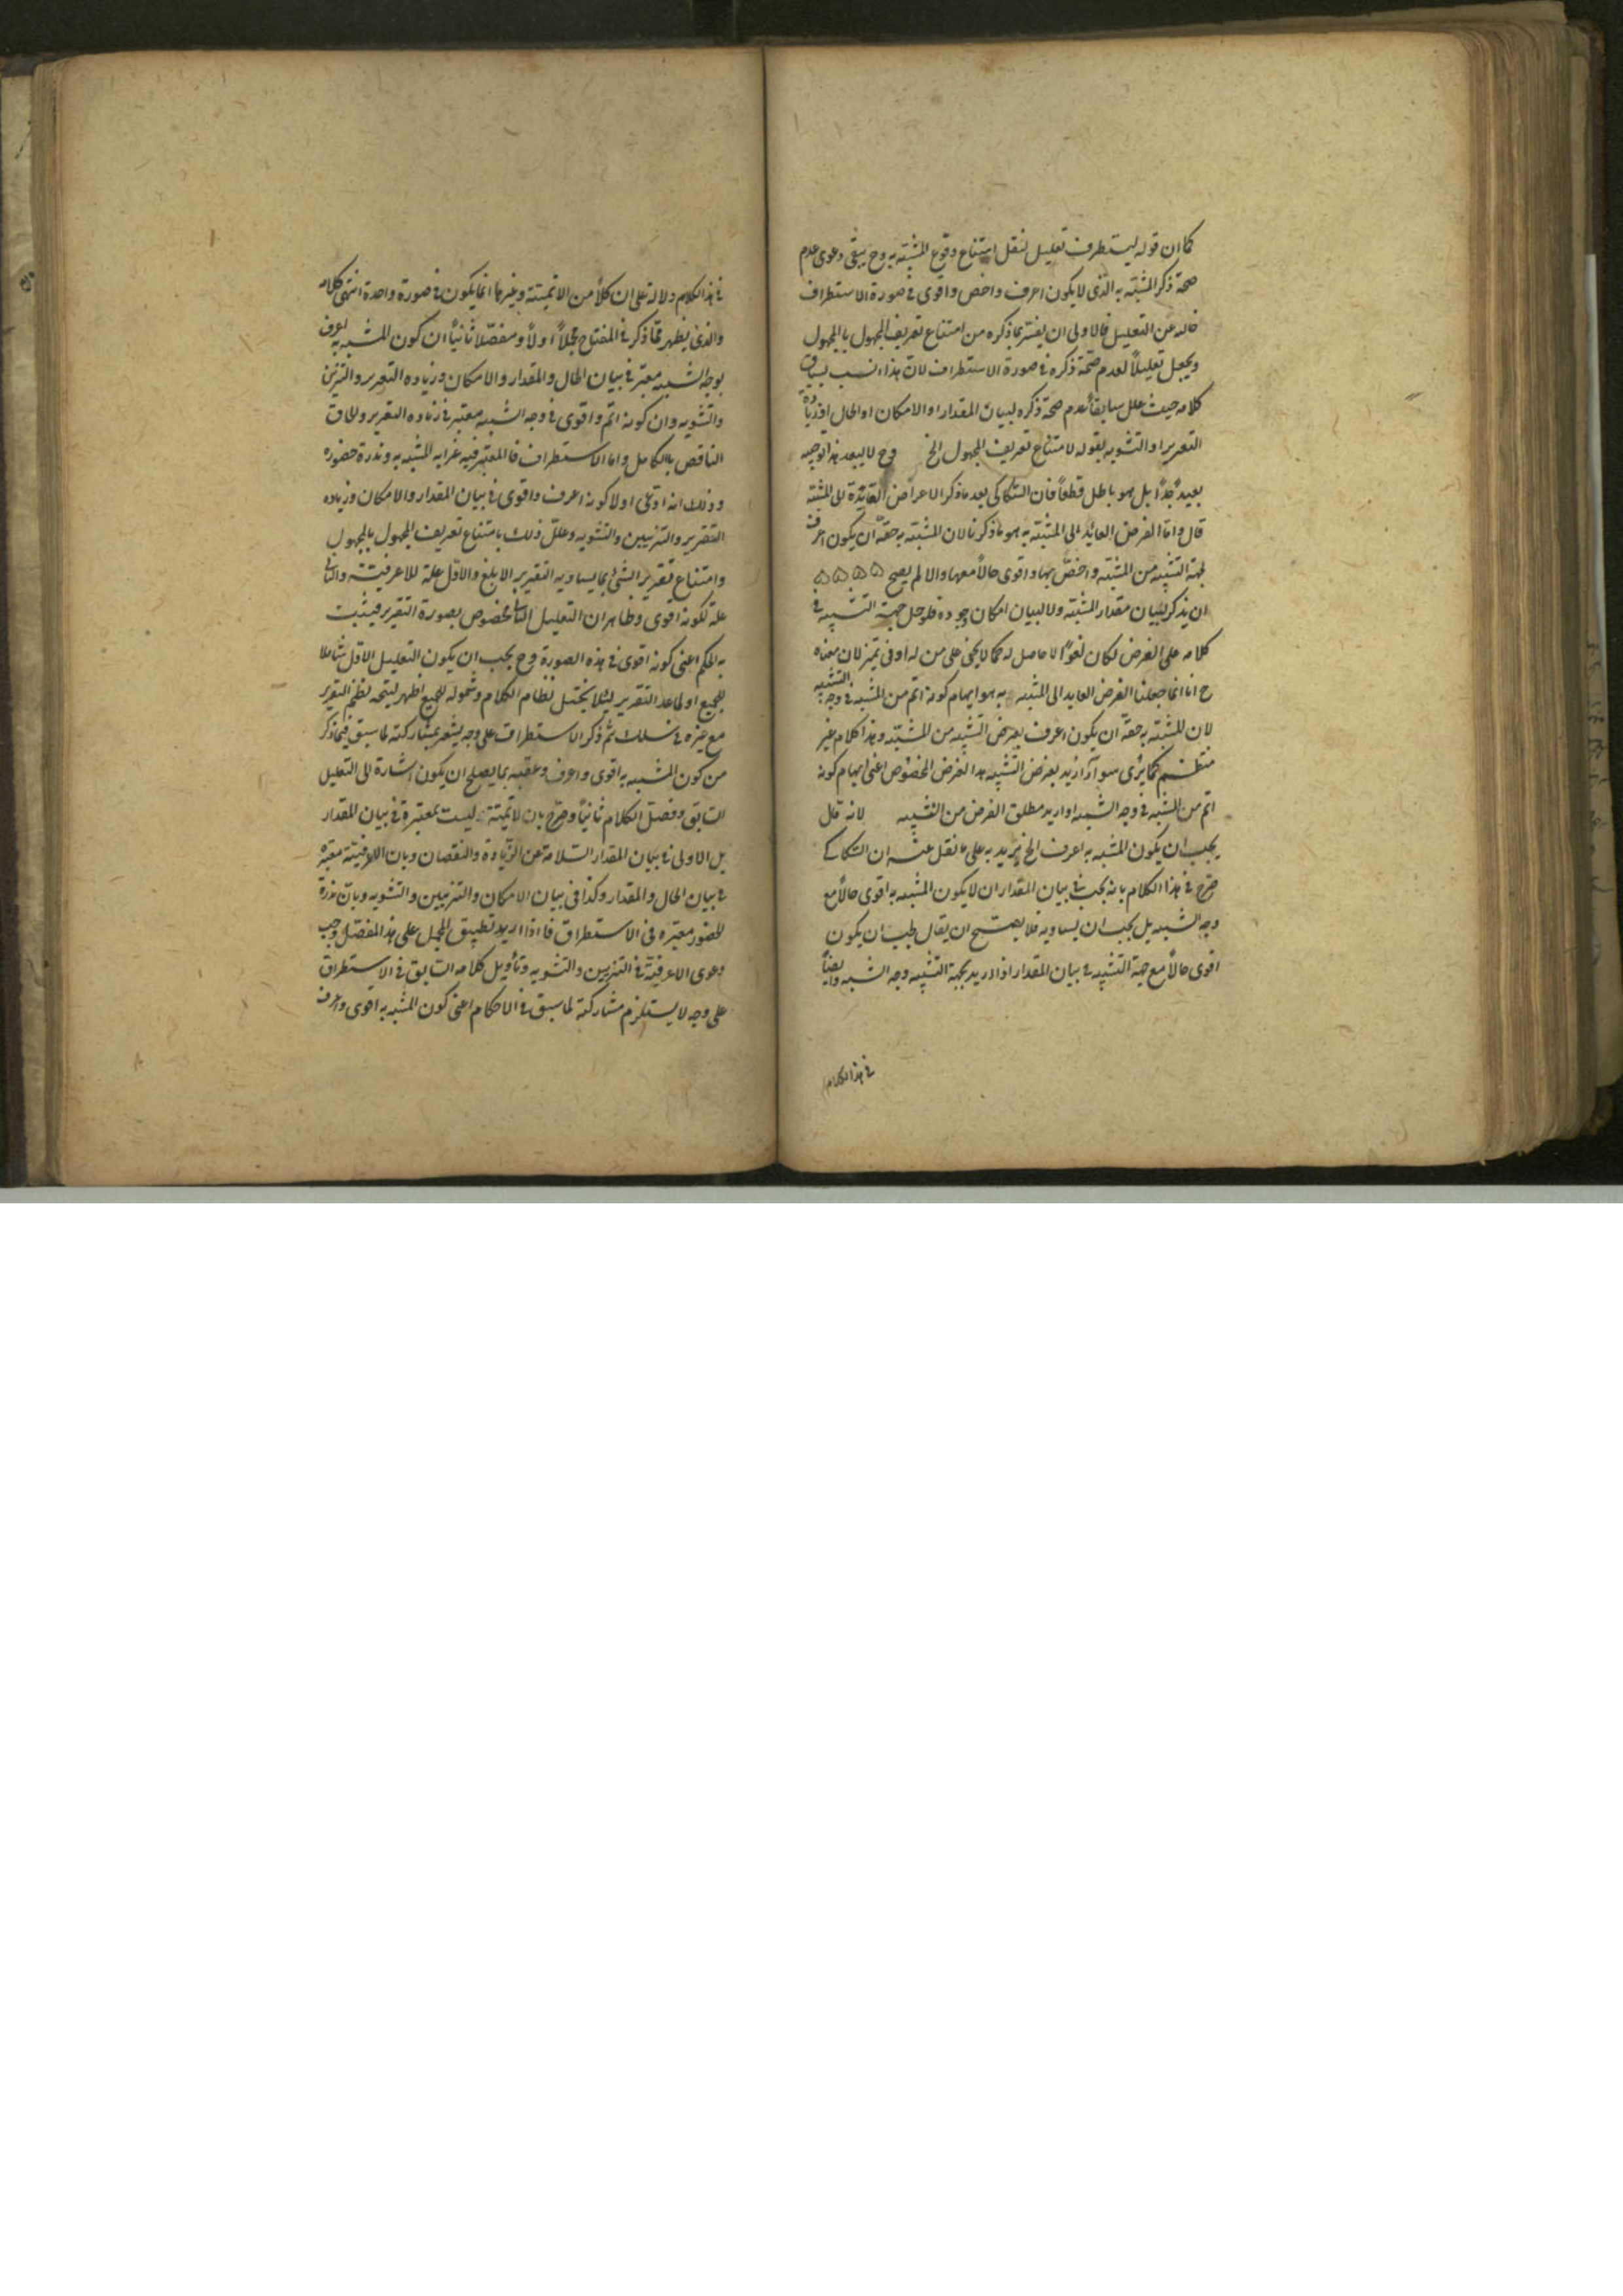 كما ان قوله ليستطرف تعليل لنقل امتناع وقوع المشبه به وح يبقى دعوى عدم
صحة ذكر المشبه به الذى لا يكون اعرف واخص واقوى فى صورة الاستطراف
خاليه عن التعليل فالاولى ان يفسر بما ذكره من امتناع تعريف المجهول بالمجهول
ويجعل تعليلاً لعدم صحة ذكره فى صورة الاستطراف لان هذا انسب بسياق
كلامه حيث علل سابقاً عدم صحة ذكره لبيان المقدار او الامكان او الحال او زيادة
التقرير او التشويه بقوله لامتناع تعريف المجهول الخ وح لا يبعد هذا توجيه
بعيد جداً بل هو باطل قطعاً فان السكاكى بعد ما ذكر الاعراض العائدة الى المشبه
قال واما الغرض العائد الى المشبه به هو ما ذكرنا لان المشبه به حقه ان يكون اعرف
لجهة التشبيه من المشبه واخص بها واقوى حالاً معها والا لم يصح
ان يذكر لبيان مقدار المشبه ولا لبيان امكان وجوده فلو حمل جهة التشبيه فى
كلامه على الغرض لكان لغواً لا حاصل له كما لا يخفى على من له اوفى تميز لان معناه
ح انا انما جعلنا الغرض العايد الى المشبه به هو ايهام كونه اتم من المشبه فى وجه التشبيه
لان للمشبه به حقه ان يكون اعرف بغرض التشبيه من المشبه وهذا كلام غير
منتظم كما يرى سواء اريد بغرض التشبيه هذا الغرض المخصوص اعنى ايهام كونه
اتم من المشبه فى وجه الشبه او اريد مطلق الغرض من التشبيه لانه قال
يجب ان يكون المشبه به اعرف الخ يريد به على ما نقل عنه ان السكاكى
صرح فى هذا الكلام بانه يجب فى بيان المقدار ان لا يكون المشبه به اقوى حالاً مع
وجه الشبه بل يجب ان يساويه فلا يصح ان يقال يجب ان يكون
اقوى حالاً مع جهة التشبيه فى بيان المقدار اذا اريد بجهة التشبيه وجه الشبه وايضاً
فى هذا الكلام
فى هذا الكلام دلالة على ان كلاً من الاتمية وغيرها انما يكون فى صورة واحدة انتهى كلامه
والذى يظهر مما ذكر فى المفتاح مجملاً اولاً ومفصلاً ثانياً ان كون المشبه به اعرف
بوجه الشبه معتبر فى بيان الحال والمقدار والامكان وزياده التقرير والتزيين
والتشويه وان كونه اتم واقوى فى وجه الشبه معتبر فى زياده التقرير والحاق
الناقص بالكامل واما الاستطراف فالمعتبر فيه غرابه المشبه به وندرة حضوره
وذلك انه ادعى اولا كونه اعرف واقوى فى بيان المقدار والامكان وزياده
التقرير والتزيين والتشويه وعلل ذلك بامتناع تعريف المجهول بالمجهول
وامتناع تقرير الشئ بما يساويه التقرير الابلغ والاول علة للاعرفية والثانى
علة لكونه اقوى وظاهر ان التعليل الثانى مخصوص بصورة التقرير فيثبت
به الحكم اعنى كونه اقوى فى هذه الصورة وح يجب ان يكون التعليل الاول شاملا
للجميع او لما عدا التقرير لئلا يختل نظام الكلام وشموله للجميع اظهر ليتجه نظم التقرير
مع غيره فى سلك ثم ذكر الاستطراف على وجه يشعر بمشاركته لما سبق فيما ذكر
من كون المشبه به اقوى واعرف وعقبه بما يصلح ان يكون اشارة الى التعليل
السابق وفصل الكلام ثانياً وصرح بان الاتمية ليست بمعتبرة فى بيان المقدار
بل الاولى فى بيان المقدار السلامة عن الزيادة والنقصان وبان الاعرفية معتبره
فى بيان الحال والمقدار وكذا فى بيان الامكان والتزيين والتشويه وبان ندرة
الحضور معتبره فى الاستطراف فاذا اريد تطبيق المجمل على هذا المفصل وجب
دعوى الاعرفية فى التزيين والتشويه وتأويل كلامه السابق فى الاستطراف
على وجه لا يستلزم مشاركته لما سبق فى الاحكام اعنى كون المشبه به اقوى واعرف